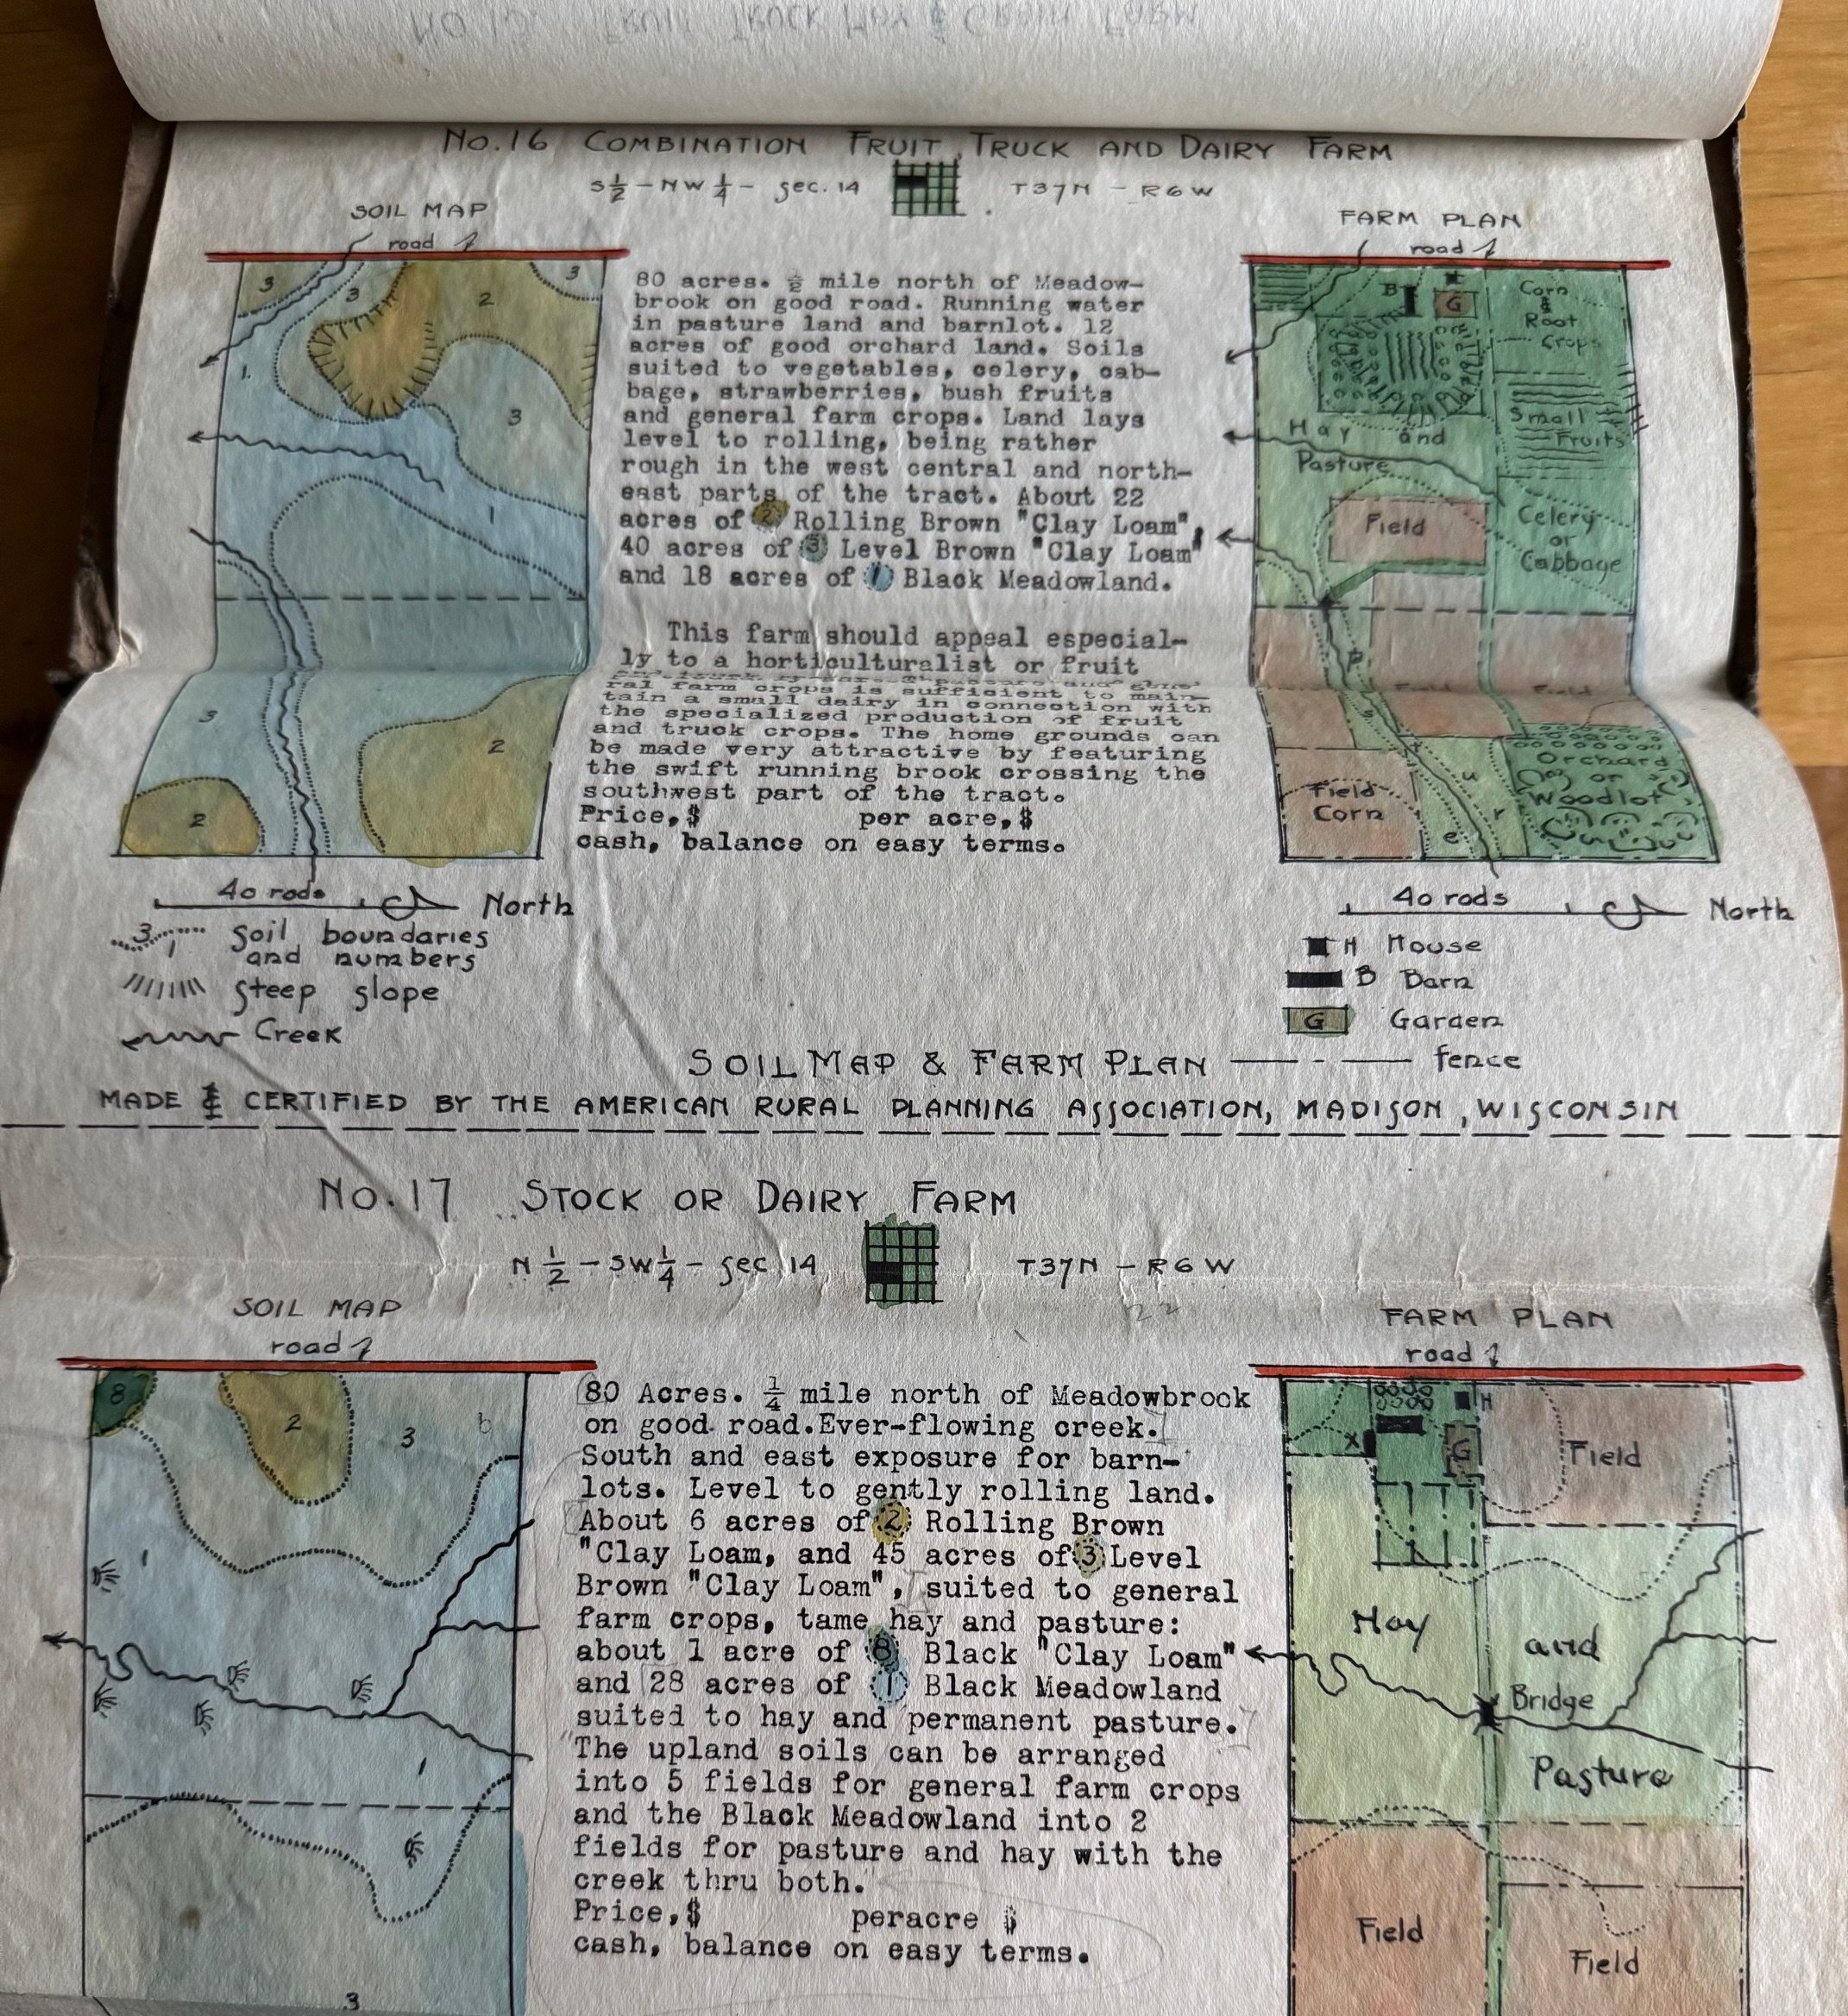 No.16 COMBINATION FRUIT, TRUCK AND DAIRY FARM
S½ – NW¼ – Sec. 14 T37N – R6W
SOIL MAP
road
3
3
2
3
1.
3
1
3
2
2
80 acres. ½ mile north of Meadow-
brook on good road. Running water
in pasture land and barnlot. 12
acres of good orchard land. Soils
suited to vegetables, celery, cab-
bage, strawberries, bush fruits
and general farm crops. Land lays
level to rolling, being rather
rough in the west central and north-
east parts of the tract. About 22
acres of 2 Rolling Brown "Clay Loam",
40 acres of 3 Level Brown "Clay Loam"
and 18 acres of 1 Black Meadowland.
This farm should appeal especial-
ly to a horticulturalist or fruit
ral farm crops is sufficient to main-
tain a small dairy in connection with
the specialized production of fruit
and truck crops. The home grounds can
be made very attractive by featuring
the swift running brook crossing the
southwest part of the tract.
Price,$ per acre,$
cash, balance on easy terms.
FARM PLAN
road
B
G
Corn
&
Root
crops
Small
Fruits
Hay and
Pasture
Field
Celery
or
Cabbage
P
Field
Field
Orchard
or
Woodlot
Field
Corn
u
r
e
40 rods North
3
1
soil boundaries
and numbers
steep slope
Creek
40 rods North
H House
B Barn
G Garden
fence
SOIL MAP & FARM PLAN
MADE & CERTIFIED BY THE AMERICAN RURAL PLANNING ASSOCIATION, MADISON, WISCONSIN
No.17 STOCK OR DAIRY FARM
N ½ – SW ¼ – Sec 14 T37N – R6W
22
SOIL MAP
road
8
2
3
b
1
1
3
80 Acres. ¼ mile north of Meadowbrook
on good road.Ever-flowing creek.
South and east exposure for barn-
lots. Level to gently rolling land.
About 6 acres of 2 Rolling Brown
"Clay Loam, and 45 acres of 3 Level
Brown "Clay Loam", suited to general
farm crops, tame hay and pasture:
about 1 acre of 8 Black "Clay Loam"
and 28 acres of 1 Black Meadowland
suited to hay and permanent pasture.
The upland soils can be arranged
into 5 fields for general farm crops
and the Black Meadowland into 2
fields for pasture and hay with the
creek thru both.
Price,$ peracre $
cash, balance on easy terms.
FARM PLAN
road
H
X
G
Field
Hay
and
Bridge
Pasture
Field
Field